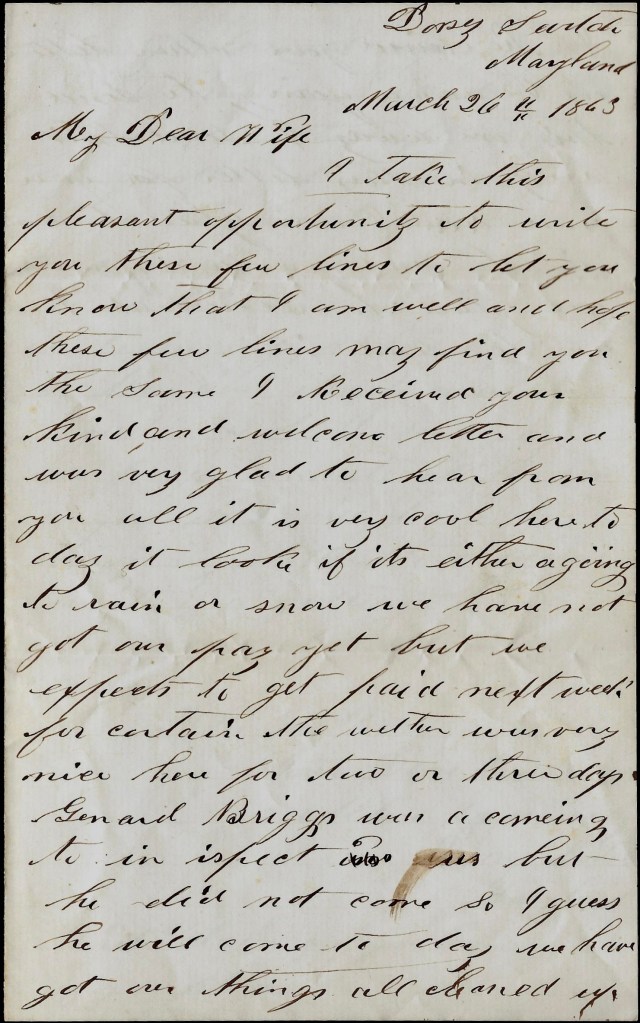 Dorsy Switch
Maryland
March 26th 1863
My Dear Wife
I Take this
pleasant opportunity to write
you these few lines to let you
know that I am well and hope
these few lines may find you
the same I Received your
kind and welcone letter and
was very glad to hear from
you all it is very cool here to
day it looks if its either agoing
to rain or snow we have not
got our pay yet but we
expects to get paid next week
for certain the wether was very
nice here for two or three days
Genard Briggs was a comeing
to in ispect us but
he did not come so I guess
he will come to day we have
got our things all cleaned up